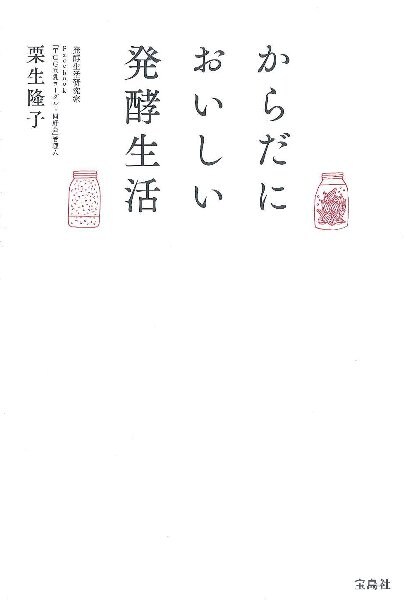 からだに
おいしい
発酵生活
発酵生活研究家
Facebook
栗生隆子
宝島社